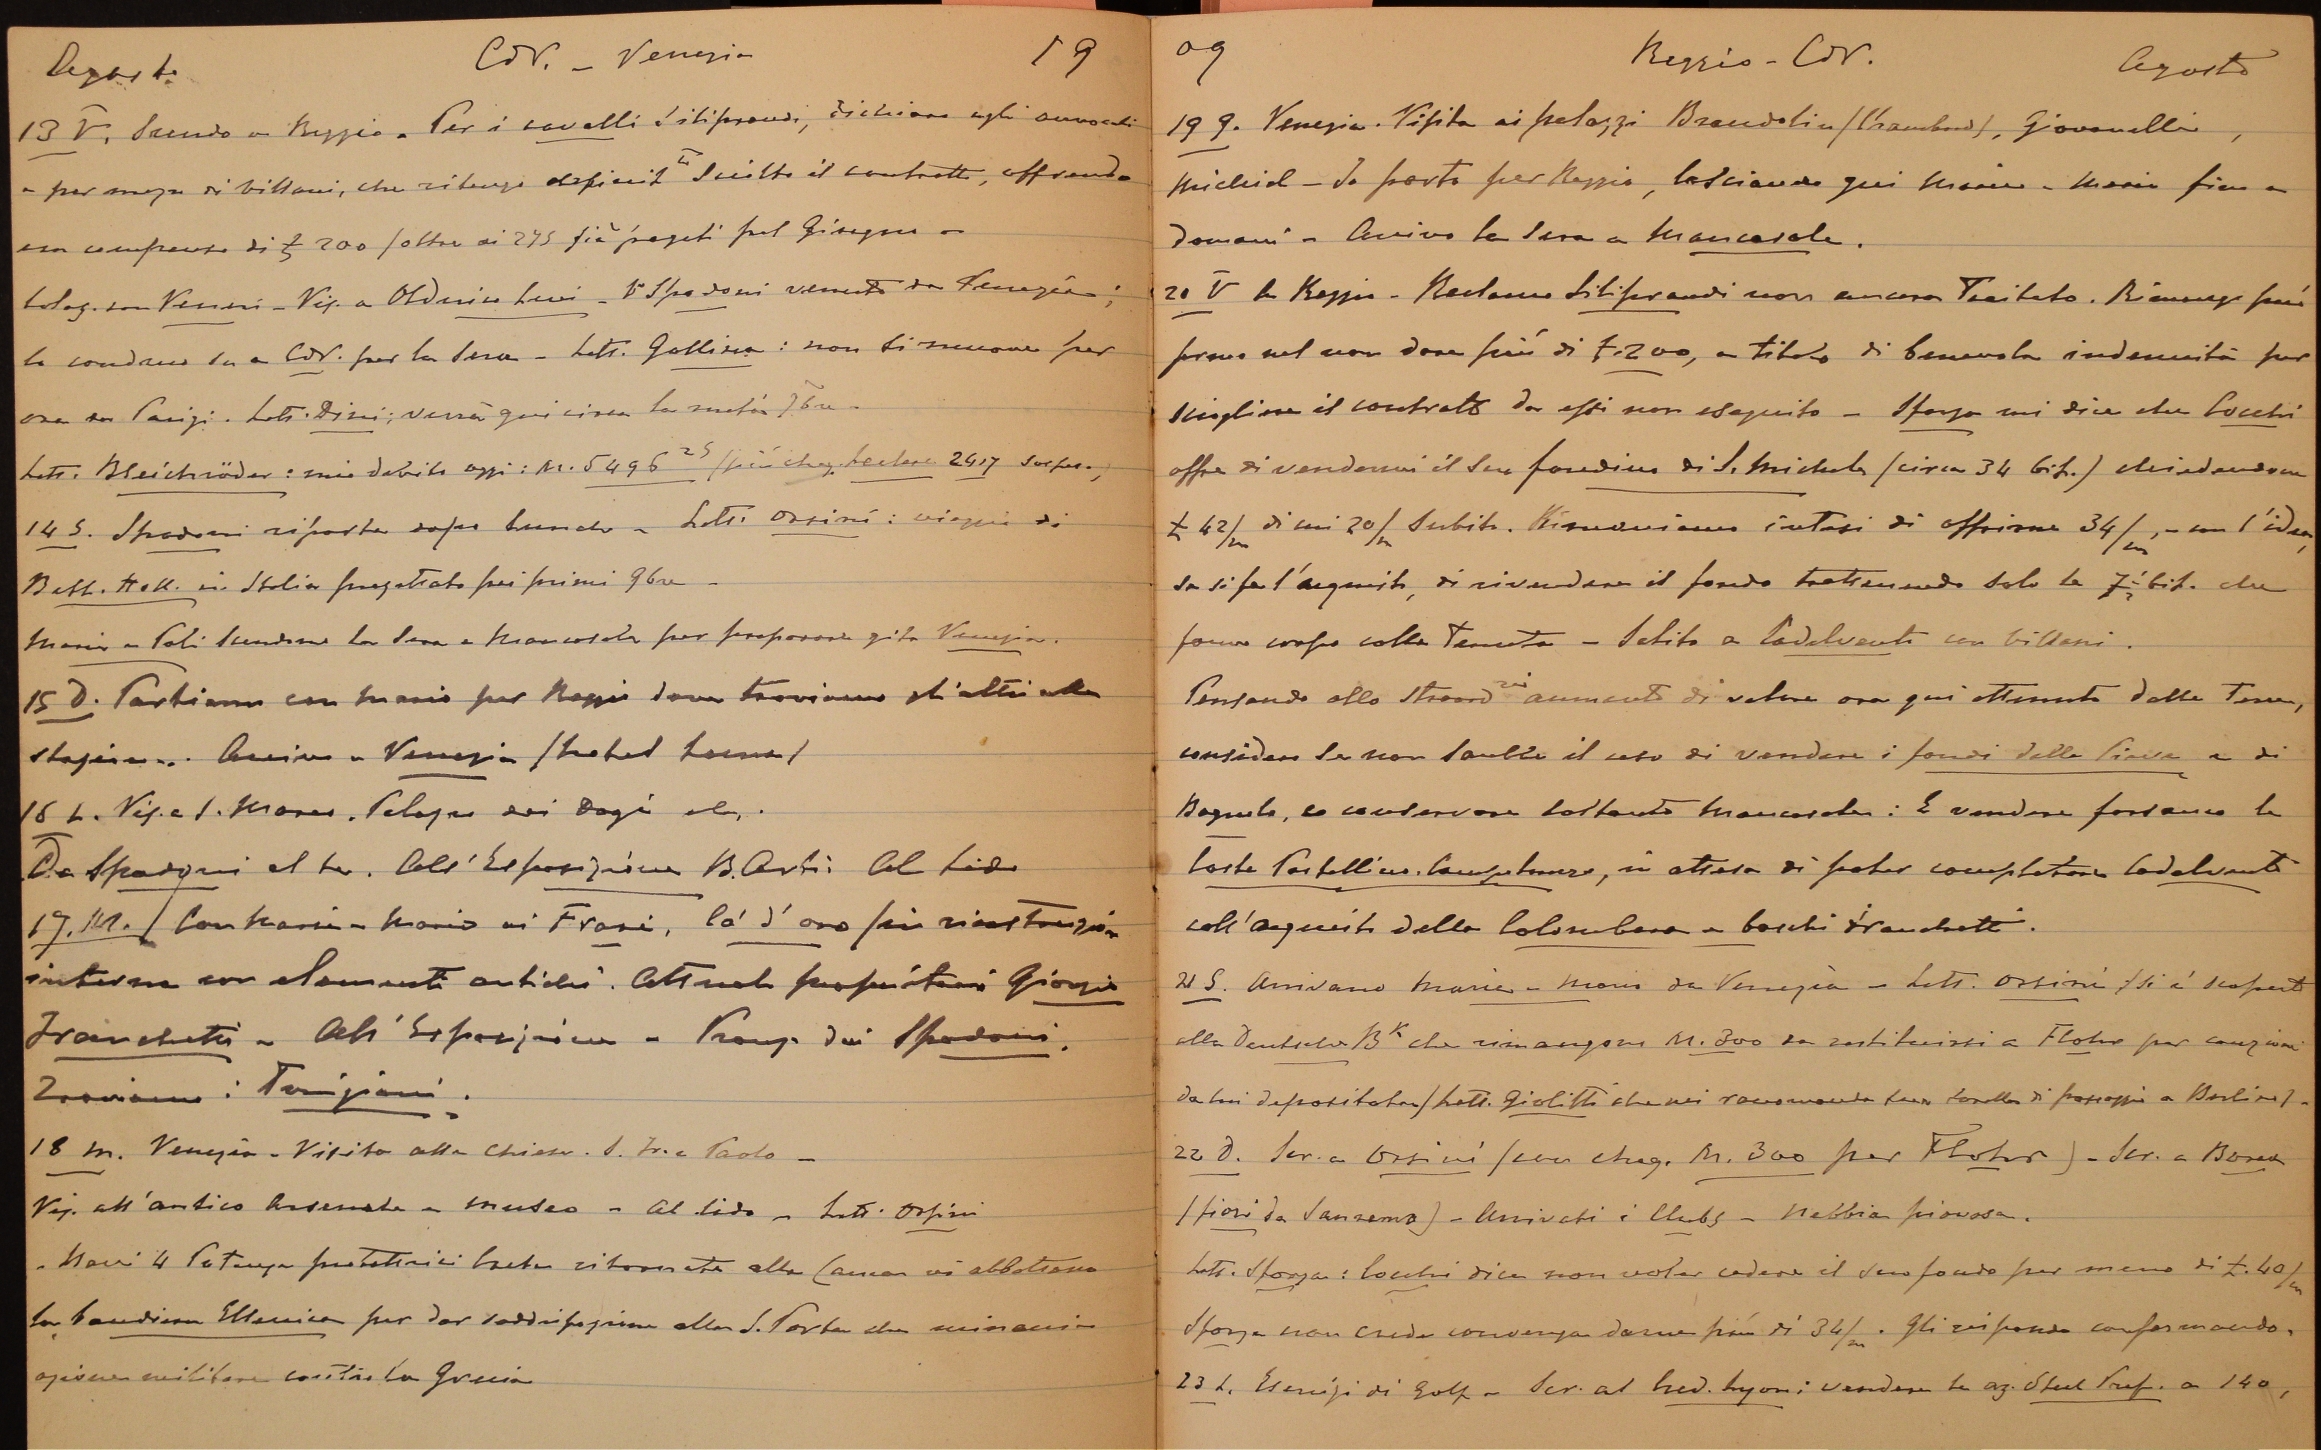 Agosto CdV. - Venezia 19
13 V. Scendo a Reggio - Per i cavalli Sitiprandi, dichiaro agli avvocati
a per mezzo di Villani, che ritengo sciolto il contratto, offrendo
un compenso di £ 200 (oltre ai 275 già pagati pel Giugno -
Venieri - Vis. a Olderico Levi - Spadoni venuto da Venezia;
lo conduco su a CdV. per la sera - Lett. Gallina: non si muove per
ora da Parigi. Lett. Dini; verrà qui circa la metà 7bre -
Lett. Bleichröder: mio debito oggi: M. 5496 25 (più cheq. 2417 sospes.)
14 S. Spadoni riparte dopo lunch - Lett. Orsini: viaggio di
Beth. Holl. in Italia progettato pei primi 9bre -
Maria e scendono la sera a Mancasale per preparare gita Venezia.
15 D. Partiamo con Mario per Reggio dove troviamo gli altri alla
stazione... Arrivo a Venezia (Hotel Luna)
16 L. Vis. a S. Marco. Palazzo dei Dogi etc.
Da Spadoni al the. All'Esposizione B. Arti. Al Lido
17. M. / Con Maria e Mario ai Frari, Cà d'oro (in ricostruzione
interna con elementi antichi. Attuale proprietario Giorgio
Franchetti - All'Esposizione - Pranzo dai Spadoni.
Troviamo: Torigiani.
18 M. Venezia - Visita alla chiesa S. Gio. e Paolo -
Vis. all'antico Arsenale e museo - Al Lido - Lett. Orsini
- Navi 4 Potenze protettrici Creta ritornate alla Canea vi abbattono
la bandiera Ellenica per dar soddisfazione alla S. Porta che minaccia
azione militare contro la Grecia
09 Reggio - CdV. Agosto
19 G. Venezia. Visita ai palazzi Brandolin, Giovanelli,
Michiel - Io parto per Reggio, lasciando qui Maria e Mario fino a
domani - Arrivo la sera a Mancasale.
20 V A Reggio - Reclamo Sitiprandi non ancora Tacitato. Rimango più
fermo nel non dare più di £. 200, a titolo di benevola indennità per
sciogliere il contratto da essi non eseguito - Sforza mi dice che Cocchi
offre di vendermi il suo fondino di S. Michele (circa 34 bif.) chiedendone
£ 42/m di cui 20/m subito. Rimaniamo intesi di offrirne 34/m, - con l'idea,
se si fa l'acquisto, di rivendere il fondo trattenendo solo le 7½ bif. che
fanno corpo colla Tenuta - Salito a Cadelvento con Villani.
Pensando allo straord rio aumento di valore ora qui ottenuto dalle Terre,
considero se non sarebbe il caso di vendere i fondi della Pieve e di
Bagnolo, e conservare soltanto Mancasale: E vendere forsanco le
Coste Castellino, in attesa di poter completare Cadelvento
coll'acquisto della Colombara e boschi Franchetti.
21 S. Arrivano Maria e Mario da Venezia - Lett. Orsini (si è scoperto
alla Deutsche Bk che rimangono M. 300 da restituirsi a Flotow per cauzione
da lui depositata) Lett. Giolitti che mi raccomanda sua sorella di passaggio a Berlino) -
22 D. Scr. a Orsini (con cheq. M. 300 per Flotow) - Scr. a Borea
(fiori da Sanremo) - Arrivati i Clubs - Nebbia piovosa.
Lett. Sforza: Cocchi dice non voler cedere il suo fondo per meno di £. 40/m
Sforza non crede convenga darne più di 34/m. Gli rispondo confermando.
23 L. Esercizi di Golf - Scr. al Cred. Lyon: vendere le az. Steel Pref. a 140,